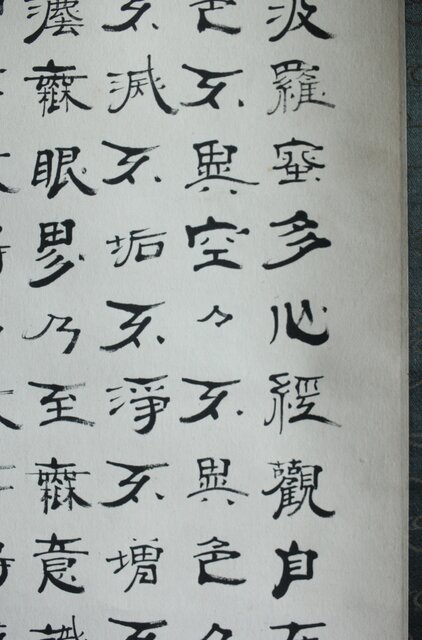 波羅蜜多心經觀自在
色不異空々不異色々
不滅不垢不淨不增不
灋無眼界乃至無意識